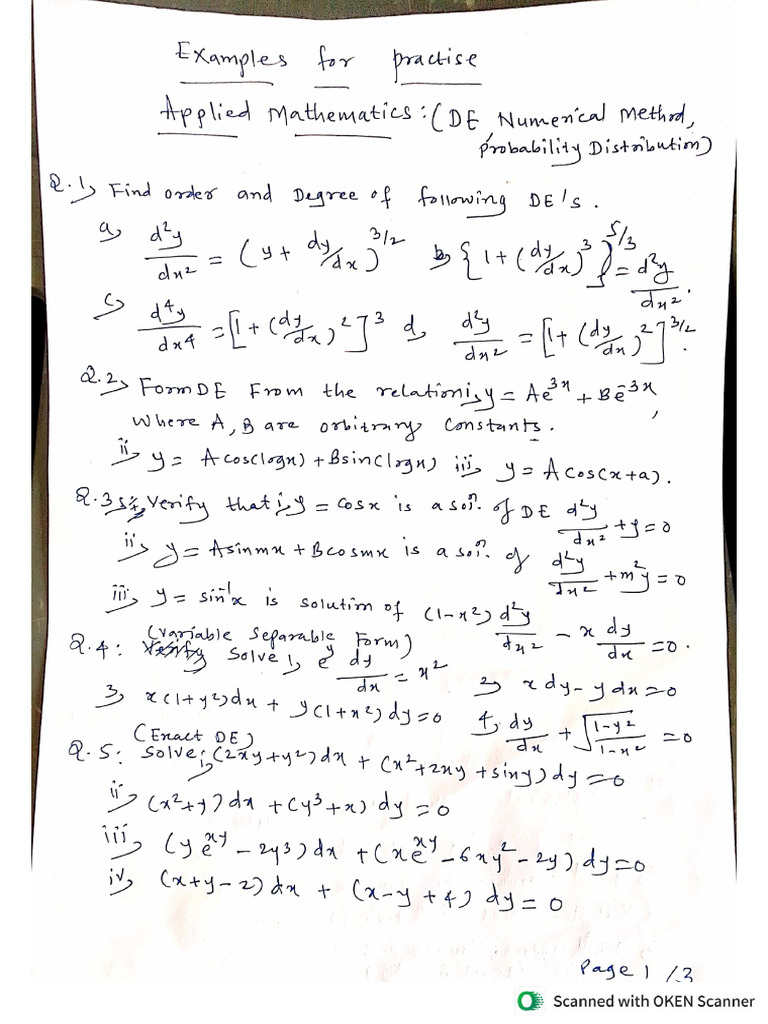 Examples for practise
Applied Mathematics: (DE Numerical Method,
probability Distribution)
Q.1) Find order and Degree of following DE's.
a) d²y/dx² = (y + dy/dx)^3/2 b) {1 + (dy/dx)³}^5/3 = d²y/dx².
c) d⁴y/dx⁴ = [1 + (dy/dx)²]³ d) d²y/dx² = [1 + (dy/dx)²]^3/2.
Q.2) Form DE From the relation i) y = Ae^3x + Be^-3x,
where A, B are orbitrary constants.
ii) y = A cos(logx) + B sin(logx) iii) y = A cos(x+a).
Q.3) Verify that i) y = cosx is a sol^n. of DE d²y/dx² + y = 0
ii) y = Asinmx + Bcosmx is a sol^n. of d²y/dx² + m²y = 0
iii) y = sin^-1 x is solution of (1-x²) d²y/dx² - x dy/dx = 0.
(variable separable Form)
Q.4: Solve 1) e^y dy/dx = x² 2) x dy - y dx = 0
3) x(1+y²)dx + y(1+x²)dy = 0 4) dy/dx + √(1-y²/1-x²) = 0
(Exact DE)
Q.5: Solve: i) (2xy+y²)dx + (x²+2xy+siny)dy = 0
ii) (x²+y)dx + (y³+x)dy = 0
iii) (ye^xy - 2y³)dx + (xe^xy - 6xy² - 2y)dy = 0
iv) (x+y-2)dx + (x-y+4)dy = 0
Page 1/3
Scanned with OKEN Scanner